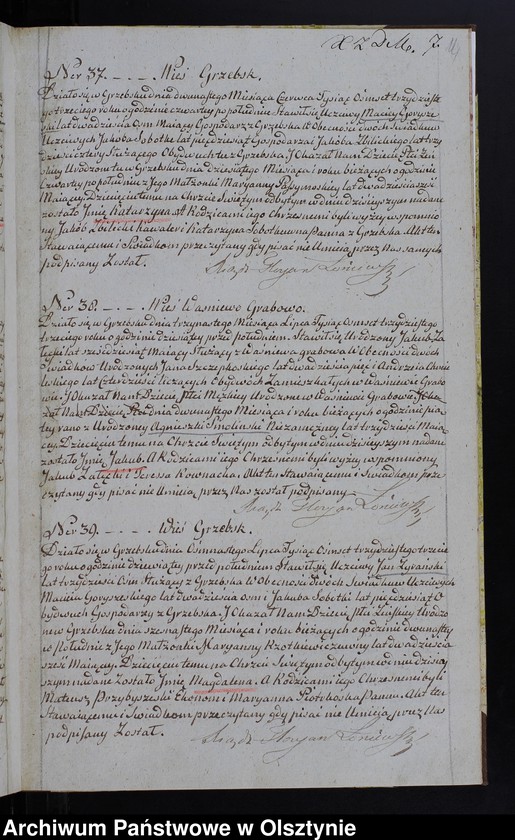 X Z D M. 7.
Ner 37. _ . _ . _ Wieś Grzebsk.
Działo się w Grzebsku dnia dwunastego Miesiąca Czerwca Tysiąc Osmset trzydzieste
go trzeciego roku o godzinie czwartey po południu. Stawił się Uczciwy Maciey Gorysze
ski lat dwadzieścia Osm Maiący Gospodarz z Grzebska W Obecności dwoch Swiadkow
Uczciwych Jakoba Sobotke lat pięćdziesiąt Gospodarza i Jakoba lat trzy
dzieści cztery Służącego Obydwuch tu z Grzebska. I Okazał Nam Dziecie Płci Zeń
skiey Urodzone tu w Grzebsku dnia dzisieyszego Miesiąca i roku bieżących o godzinie
Czwartey po południu z Jego Małzonki Maryanny lat dwadzieścia sześć
Maiącey. Dziecięciu temu na Chrzcie Swiętym odbytym w dniu dzisieyszym nadane
zostało Jmię Katarzyna. A Rodzicami iego Chrzesnemi byli wyżey wspomnio
ny Jakób kawaler i Katarzyna Sobotkowna Panna z Grzebska. Akt ten
Stawaiącemu i Swiadkom przeczytany gdy pisać nie Umieią przez Nas samych
podpisany Został.
Ner 38. _ . _ . _ Wieś Wasniewo Grabowo.
Działo się w Grzebsku dnia trzynastego Miesiąca Lipca Tysiąc Osmset trzydziestego
trzeciego roku o godzinie dziesiątey przed południem. Stawił się Urodzony Jakub Za
łęcki lat sześćdziesiąt Maiący Służący z Waśniewa grabowa W Obecności dwoch
Swiadkow Urodzonych Jana Szczepkoskiego lat dwadzieścia pięć i Andrzeia Chmie
leskiego lat Czterdzieści liczących Obydwoch Zamieszkałych w Wasniewie Grabo
wie. I Okazał Nam Dziecie Płci Męzkiey Urodzone w Waśniewie Grabowie
dnia dwunastego Miesiąca i roku bieżących o godzinie pią
tey rano z Urodzoney Agnieszki Smolinski Niezamęzney lat trzydzieści Maią
cey. Dziecięciu temu na Chrzcie Swiętym odbytym w dniu dzisieyszym nadane
zostało Jmię Jakub. A Rodzicami iego Chrzesnemi byli wyżey wspomniony
Jakub Załęcki i Teressa Kownacka. Akt ten Stawaiącemu i Swiadkom prze
czytany gdy pisać nie Umieią, przez Nas został podpisany.
Ner 39. _ . _ . _ Wieś Grzebsk.
Działo się w Grzebsku dnia Osmnastego Lipca Tysiąc Osmset trzydziestego trzecie
go roku o godzinie dziewiątey przed południem Stawił się Uczciwy Jan Zyrański
lat trzydzieści Osm Służący z Grzebska W Obecności dwóch Swiadkow Uczciwych
Macieia Goryszeskiego lat dwadzieścia osm i Jakuba Sobotki lat pięćdziesiąt O
bydwuch Gospodarzy z Grzebska. I Okazał Nam Dziecie Płci Zeńskiey Urodzo
ne w Grzebsku dnia szesnastego Miesiąca i roku bieżących o godzinie dwunastey
w Południe z Jego Małzonki Maryanny lat dwadzieścia
sześć Maiącey. Dziecięciu temu na Chrzcie Swiętym odbytym w dniu dzisiey
szym nadane Zostało Jmię Magdalena. A Rodzicami iego Chrzesnemi byli
Mateusz Przybyszeski Ekonom i Maryanna Piotrkoska Panna. Akt ten
Stawaiącemu i Swiadkom przeczytany gdy pisać nie Umieią przez Nas
podpisany Został.
Archiwum Państwowe w Olsztynie